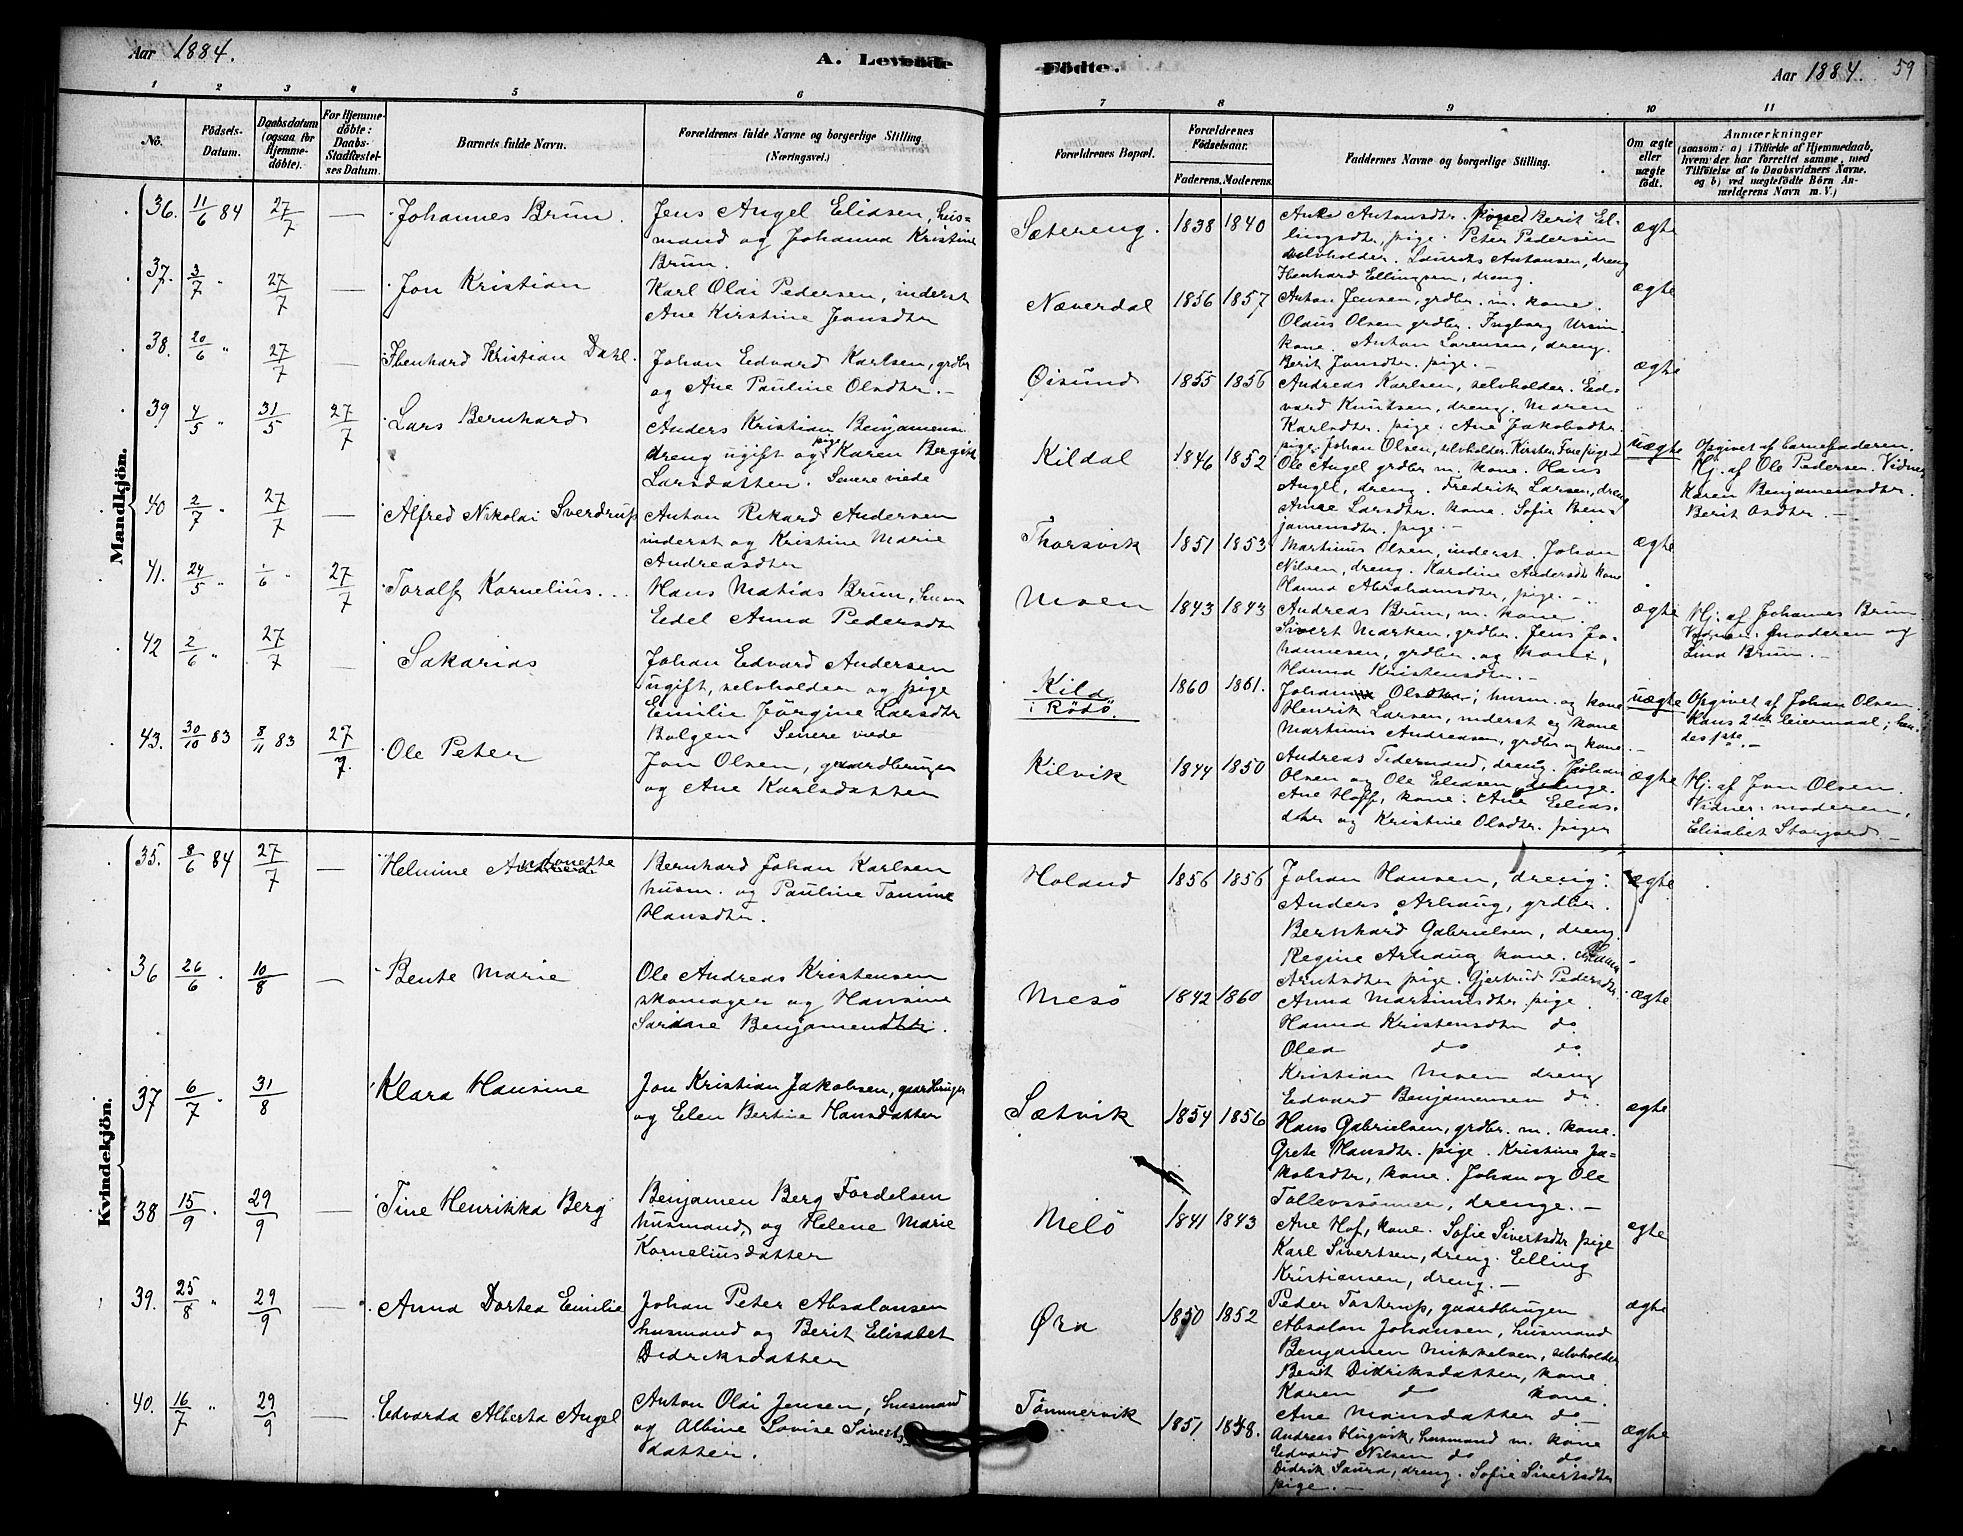 Aar 1884.
A. Levende
Födte.
Aar 1884. 59
1 2 3 4 5 6 7 8 9 10 11
No.
Födsels-
Datum.
Daabsdatum
(ogsaa for
Hjemme-
døbte).
For Hjemme-
døbte:
Daabs-
Stadfæstel-
ses Datum.
Barnets fulde Navn.
Forældrenes fulde Navne og borgerlige Stilling
(Næringsvei.)
Forældrenes Bopæl.
Forældrenes
Födselsaar.
Faderens. Moderens.
Faddernes Navne og borgerlige Stilling.
Om ægte
eller
uægte
födt.
Anmærkninger
(saasom: a) i Tilfælde af Hjemmedaab,
hvem der har forrettet samme, med
Tilföielse af to Daabsvidners Navne,
og b) ved uægtefödte Börn An-
melderens Navn m. V.)
Mandkjön.
36. 11/6 84 27/7 — Johannes Brun.
Jens Angel Eliasen, hus-
mand og Johanna Kristine
Brun.
Sætereng. 1838 1840
Antonsdtr. Berit El-
lingsdtr, pige. Peter Pedersen
selvholder. Laurits Antonsen, dreng
Ellingsen, dreng.
ægte
37. 3/7 " 27/7 — Jon Kristian
Karl Olai Pedersen, inderst
Ane Kirstine Jonsdtr
Næverdal 1856 1857
Anton Jensen, grdbr. m. kone.
Olaus Olsen grdbr. Ingborg Ursin
kone. Anton Lorensen, dreng.
Berit Jonsdtr. pige. —
ægte
38. 20/6 " 27/7 — Kristian Dahl.
Johan Edvard Karlsen, grdbr
og Ane Pauline Olsdtr. —
Øisund 1855 1856
Andreas Karlsen, selvholder. Ed-
vard Knutsen, dreng. Maren
Karlsdtr. pige. Ane Jakobsdtr.
pige. Johan Olsen, selvholder. Kirsten pige —
ægte
39 4/5 " 31/5 27/7 Lars Bernhard
Anders Kristian Benjamens.
dreng ugift og pige Karen Bergit
Larsdatter. Senere viede
Kildal 1846 1852
Ole Angel grdbr m. kone. Hans
Angel, dreng. Fredrik Larsen, dreng
Larsdtr. kone. Sofie Ben-
jamensdtr. pige. —
uægte
Opgivet af barnefaderen.
Hj. af Ole Pedersen. Vidner
Karen Benjamensdtr.
Berit Osdtr. —
40 2/7 " 27/7 — Alfred Nikolai Sverdrup
Anton Rikard Andersen
inderst og Kristine Marie
Andreasdtr
Thorsvik 1851 1853
Martinus Olsen, inderst. Johan
Nilsen, dreng. Karoline Andersdtr kone
Hanna Abrahamsdtr, pige. —
ægte
41. 24/5 " 1/6 " 27/7 Toralf Kornelius.
Hans Matias Brun, husm
Edel Anna Pedersdtr
Moen 1843 1843
Andreas Brun, m. kone.
Sivert Marken, grdbr. Jens Jo-
hannesen, grdbr. og kone,
Hanna Kristensdtr. —
ægte
Hj. af Johannes Brun
Vidner: moderen og
Lina Brun. —
42 2/6 " 27/7 — Sakarias
Johan Edvard Andersen
ugift, selvholder og pige
Emilie Jörgine Larsdtr
Bolgen Senere viede
Kila
i Rödö. 1860 1861.
Olsen; husm. og kone
Henrik Larsen, inderst og kone
Martinus Andreasen, grdbr og kone. —
uægte
Opgivet af Johan Olsen.
Hans 2det leiermaal; hen-
des 1ste. —
43. 30/10 83 8/11 83 27/7 Ole Peter
Jon Olsen, gaardbruger
og Ane Karlsdatter
Kilvik 1844 1850
Andreas Tidemand, dreng. Johan
Olsen og Ole Eliasen drenge.
Ane Hoff, kone. Ane Elias-
dtr og Kristine Olsdtr. piger
ægte
Hj. af Jon Olsen.
Vidner: moderen,
Elisabet Storjord —
Kvindekjön.
35. 8/6 84 27/7 — Helmine Antonette
Bernhard Johan Karlsen
husm. og Pauline Tomine
Hansdtr.
Holand 1856 1856
Johan Hansen, dreng.
Anders Arhaug, grdbr.
Bernhard Gabrielsen, dreng.
Regine Arhaug kone.
Arntsdtr pige. Gjertrud Pedersdtr.
ægte
36 26/6 " 10/8 — Bente Marie
Ole Andreas Kristensen
skomager og Hansine
Benjamensdtr.
Mesö 1842 1860
Anna Martinusdtr pige.
Hanna Kristensdtr do.
Olea do do.
Kristian Moen dreng
Edvard Benjamensen do.
ægte
37 6/7 " 31/8 Klara Hansine
Jon Kristian Jakobsen, gaardbruger
og Elen Bertine Hansdatter
Sætvik 1854 1856
Hans Gabrielsen, grdbr. m. kone.
Grete Hansdtr. pige. Kristine Ja-
kobsdtr, kone. Johan og Ole
Tollevssönner, drenge. —
ægte
38 15/9 " 29/9 — Tine Henrikka Berg
Benjamen Berg Fordelsen
husmand, og Helene Marie
Korneliusdatter
Melö 1841 1843
Ane Hof, kone. Sofie Sivertsdtr pige
Karl Sivertsen, dreng. Elling
Kristiansen, dreng. —
ægte
39. 25/8 " 29/9 — Anna Dortea Emilie
Johan Peter Absalonsen
husmand og Berit Elisabet
Didriksdatter
Øra 1850 1852
Peder Tostrup, gaardbruger
Absalon Johansen, husmand
Benjamen Mikkelsen, selvholder
Berit Didriksdatter, kone.
Karen do kone.
Ane Monsdatter do —
ægte
40. 16/7 " 29/9 — Edvarda Alberta Angel
Anton Olai Jensen, husmand
og Albine Lovise Siverts-
datter.
Tömmervik 1851 1848.
Andreas Hugvik, husmand m. kone
Edvard Nilsen do do
Didrik Saura, dreng. Sofie Sivertsdtr
pige. —
ægte